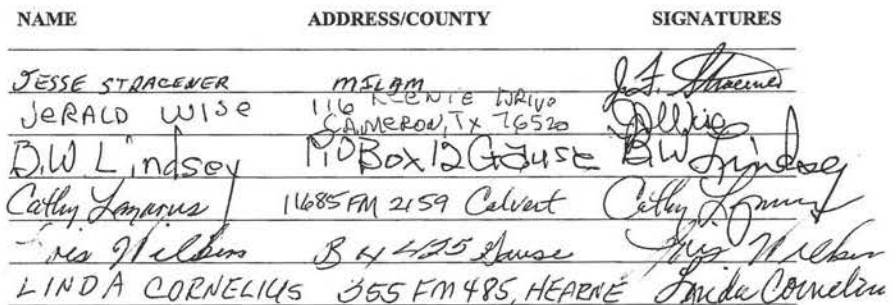 NAME ADDRESS/COUNTY SIGNATURES
JESSE STRACENER MILAM J.F. Stracener
JERALD WISE 116 DRIVE
CAMERON, TX 76520 Wise
B.W. Lindsey P.O Box 12 Gause B.W Lindsey
Cathy Lazarus 11685 FM 2159 Calvert Cathy
Iris Wilkens B x 425 Gause Iris
LINDA CORNELIUS 355 FM 485, HEARNE Linda Cornelius